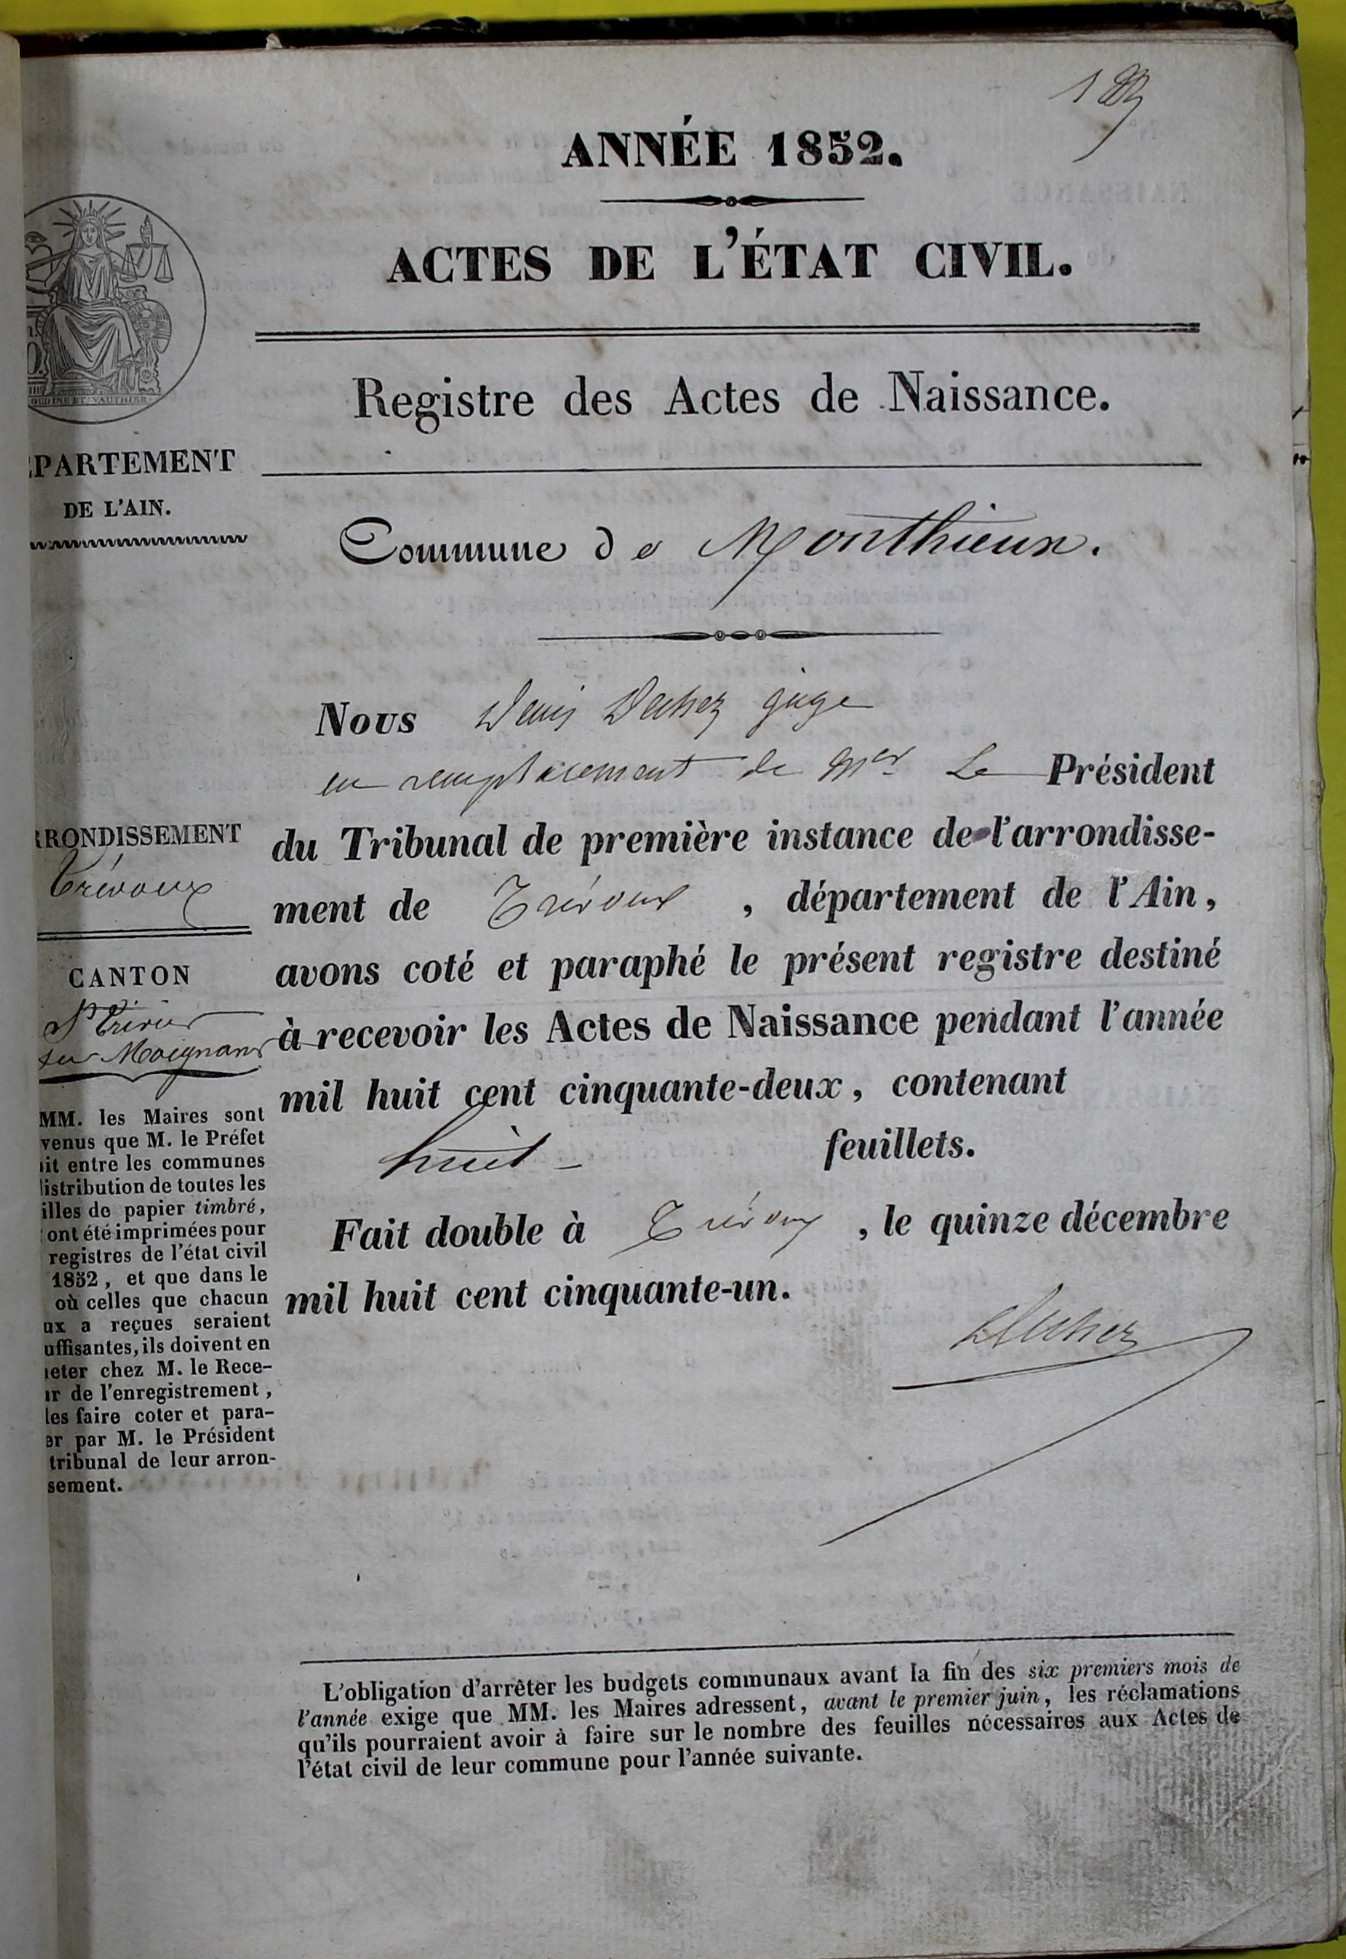 ANNÉE 1852.
ACTES DE L'ÉTAT CIVIL.
Registre des Actes de Naissance.
PARTEMENT
DE L'AIN.
Commune de Monthieux.
Nous Denis Dechez juge
en remplacement de Mer Le Président
RRONDISSEMENT
Trévoux
du Tribunal de première instance de l'arrondisse-
ment de Trévoux, département de l'Ain,
CANTON
St Trivier
sur Moignans
avons coté et paraphé le présent registre destiné
à recevoir les Actes de Naissance pendant l'année
mil huit cent cinquante-deux, contenant
huit feuillets.
Fait double à Trévoux, le quinze décembre
mil huit cent cinquante-un.
Dechez
MM. les Maires sont
venus que M. le Préfet
it entre les communes
distribution de toutes les
illes de papier timbré,
ont été imprimées pour
registres de l'état civil
1852, et que dans le
où celles que chacun
ux a reçues seraient
uffisantes, ils doivent en
eter chez M. le Rece-
ur de l'enregistrement,
les faire coter et para-
er par M. le Président
tribunal de leur arron-
sement.
L'obligation d'arrêter les budgets communaux avant la fin des six premiers mois de
l'année exige que MM. les Maires adressent, avant le premier juin, les réclamations
qu'ils pourraient avoir à faire sur le nombre des feuilles nécessaires aux Actes de
l'état civil de leur commune pour l'année suivante.